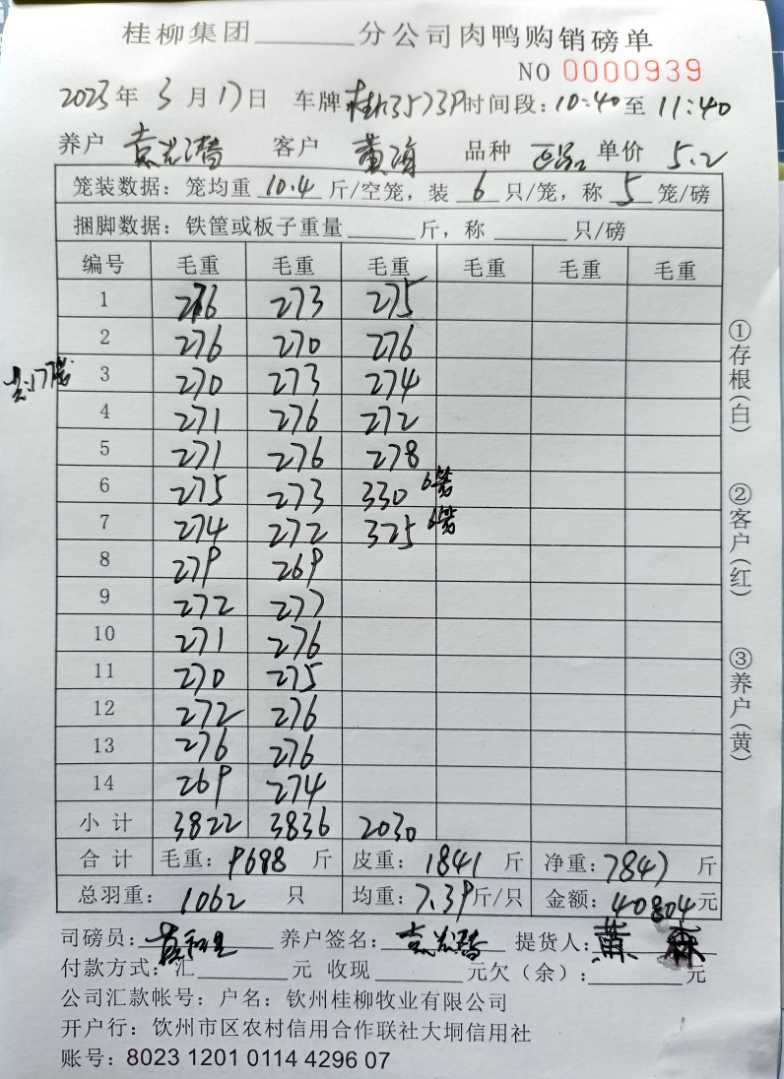 桂柳集团______分公司肉鸭购销磅单
NO 0000939
2023年 3月17日 车牌 3573P 时间段:10:40至 11:40
养户 客户 黄海 品种 单价 5.2
笼装数据:笼均重 10.4 斤/空笼,装 6 只/笼,称 5 笼/磅
捆脚数据:铁筐或板子重量______斤,称______只/磅
编号 毛重 毛重 毛重 毛重 毛重 毛重
1 276 273 275
2 276 270 276
共177笼 3 270 273 274
4 271 276 272
5 271 276 278
6 275 273 330 6笼
7 274 272 325 6笼
8 279 269
9 272 277
10 271 276
11 270 275
12 272 276
13 276 276
14 269 274
小计 3822 3836 2030
合计 毛重:9688 斤 皮重:1841 斤 净重:7847 斤
总羽重:1062 只 均重:7.39斤/只 金额:40804元
司磅员: 养户签名: 提货人:黄 森
付款方式:汇______元 收现______元欠(余):______元
公司汇款帐号:户名:钦州桂柳牧业有限公司
开户行:钦州市区农村信用合作联社大垌信用社
账号:8023 1201 0114 4296 07
①存根(白) ②客户(红) ③养户(黄)